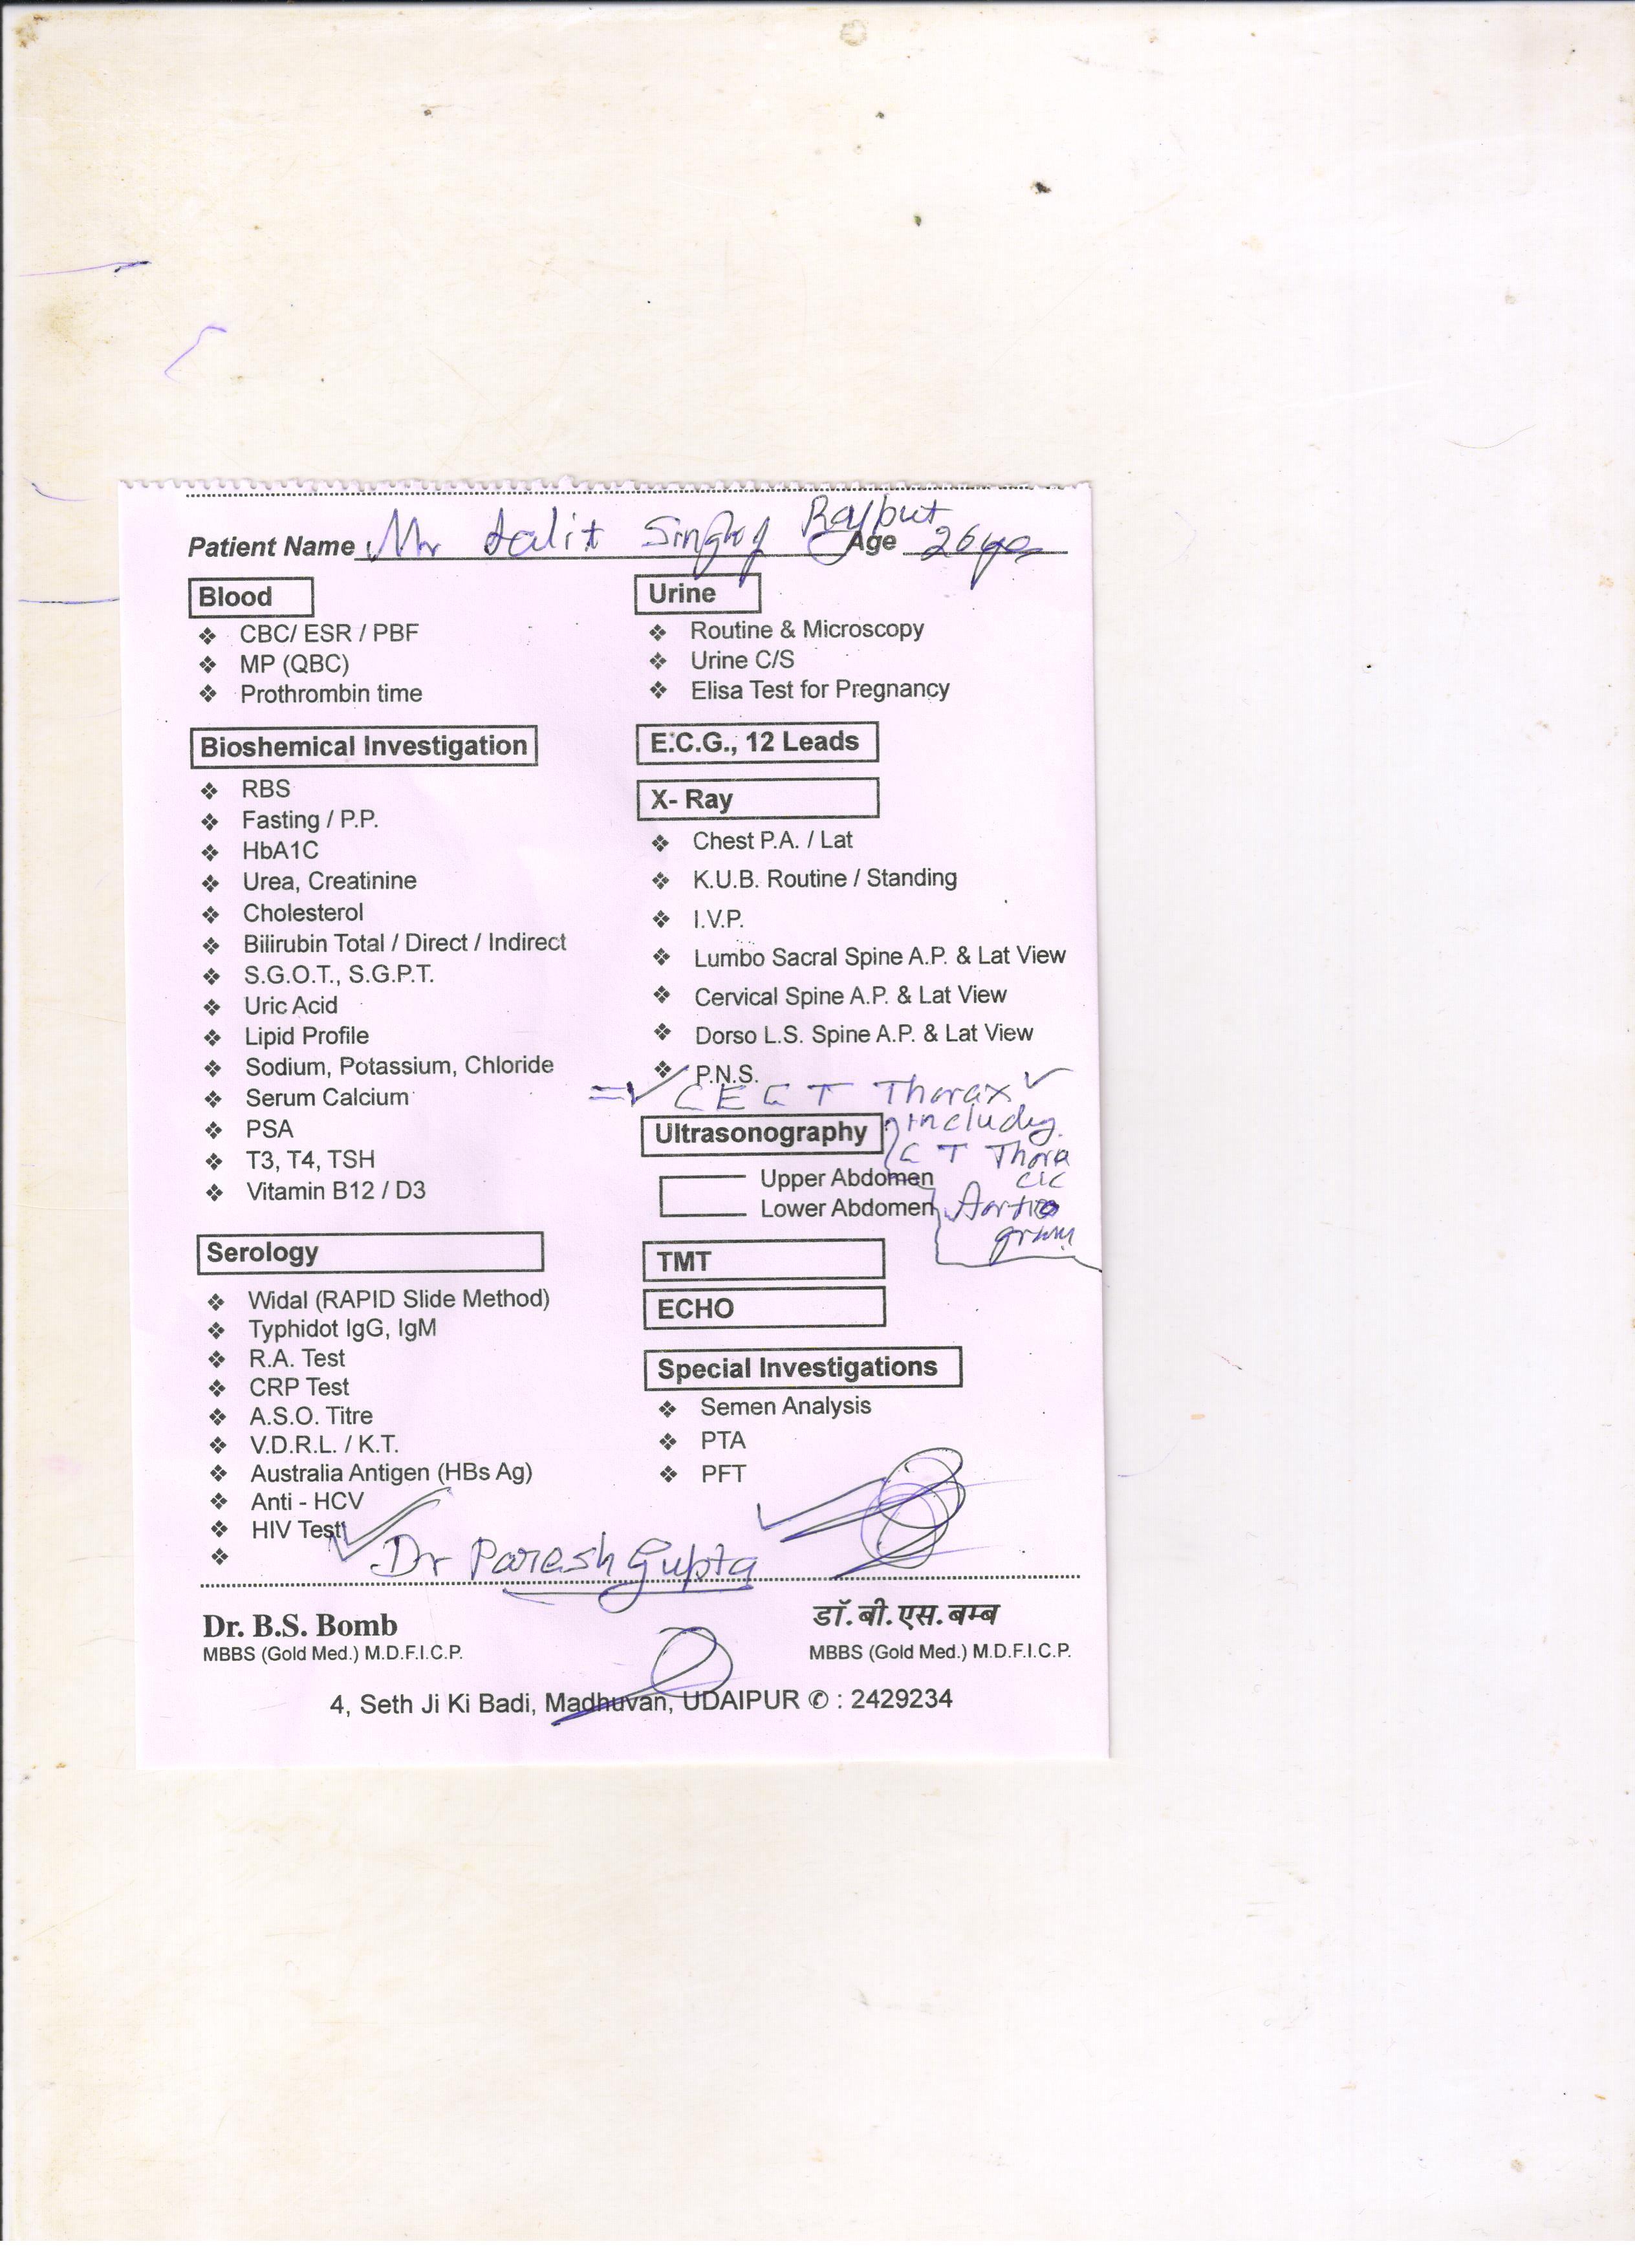 Patient Name Mr Lalit Singh Rajput Age 26 yrs
Blood
❖ CBC/ ESR / PBF
❖ MP (QBC)
❖ Prothrombin time
Bioshemical Investigation
❖ RBS
❖ Fasting / P.P.
❖ HbA1C
❖ Urea, Creatinine
❖ Cholesterol
❖ Bilirubin Total / Direct / Indirect
❖ S.G.O.T., S.G.P.T.
❖ Uric Acid
❖ Lipid Profile
❖ Sodium, Potassium, Chloride
❖ Serum Calcium
❖ PSA
❖ T3, T4, TSH
❖ Vitamin B12 / D3
Serology
❖ Widal (RAPID Slide Method)
❖ Typhidot IgG, IgM
❖ R.A. Test
❖ CRP Test
❖ A.S.O. Titre
❖ V.D.R.L. / K.T.
❖ Australia Antigen (HBs Ag)
❖ Anti - HCV
❖ HIV Test
❖
Urine
❖ Routine & Microscopy
❖ Urine C/S
❖ Elisa Test for Pregnancy
E.C.G., 12 Leads
X- Ray
❖ Chest P.A. / Lat
❖ K.U.B. Routine / Standing
❖ I.V.P.
❖ Lumbo Sacral Spine A.P. & Lat View
❖ Cervical Spine A.P. & Lat View
❖ Dorso L.S. Spine A.P. & Lat View
❖ P.N.S.
CECT Thorax
including
CT Thora
cic
Aorto
gram
Ultrasonography
Upper Abdomen
Lower Abdomen
TMT
ECHO
Special Investigations
❖ Semen Analysis
❖ PTA
❖ PFT
Dr Paresh Gupta
Dr. B.S. Bomb
MBBS (Gold Med.) M.D.F.I.C.P.
डॉ. बी. एस. बम्ब
MBBS (Gold Med.) M.D.F.I.C.P.
4, Seth Ji Ki Badi, Madhuvan, UDAIPUR ✆ : 2429234